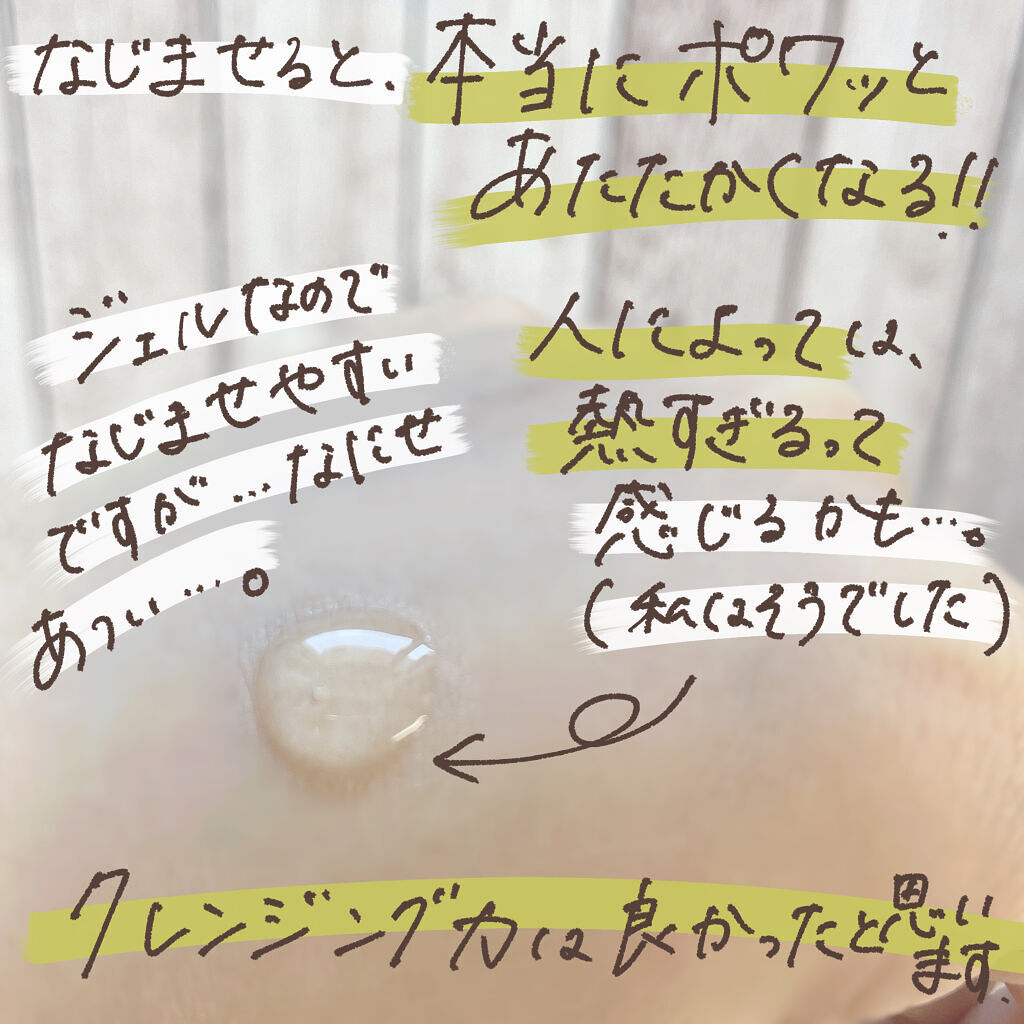 なじませると、本当にポワッと
あたたかくなる!!
ジェルなので
なじませやすい
ですが…なにせ
あつい…。
人によっては、
熱すぎるって
感じるかも…。
(私はそうでした)
クレンジング力は良かったと思います.